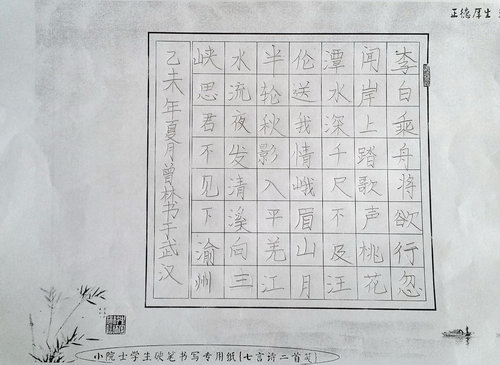 正德厚生
李白乘舟将欲行忽
闻岸上踏歌声桃花
潭水深千尺不及汪
伦送我情峨眉山月
半轮秋影入平羌江
水流夜发清溪向三
峡思君不见下渝州
乙未年夏月曾林书于武汉
小院士学生硬笔书写专用纸{七言诗二首